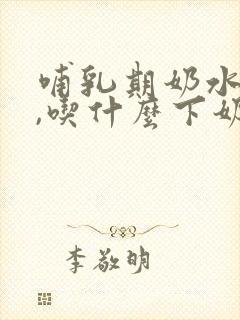 哺乳期奶水
,喫什麼下奶
李敬明